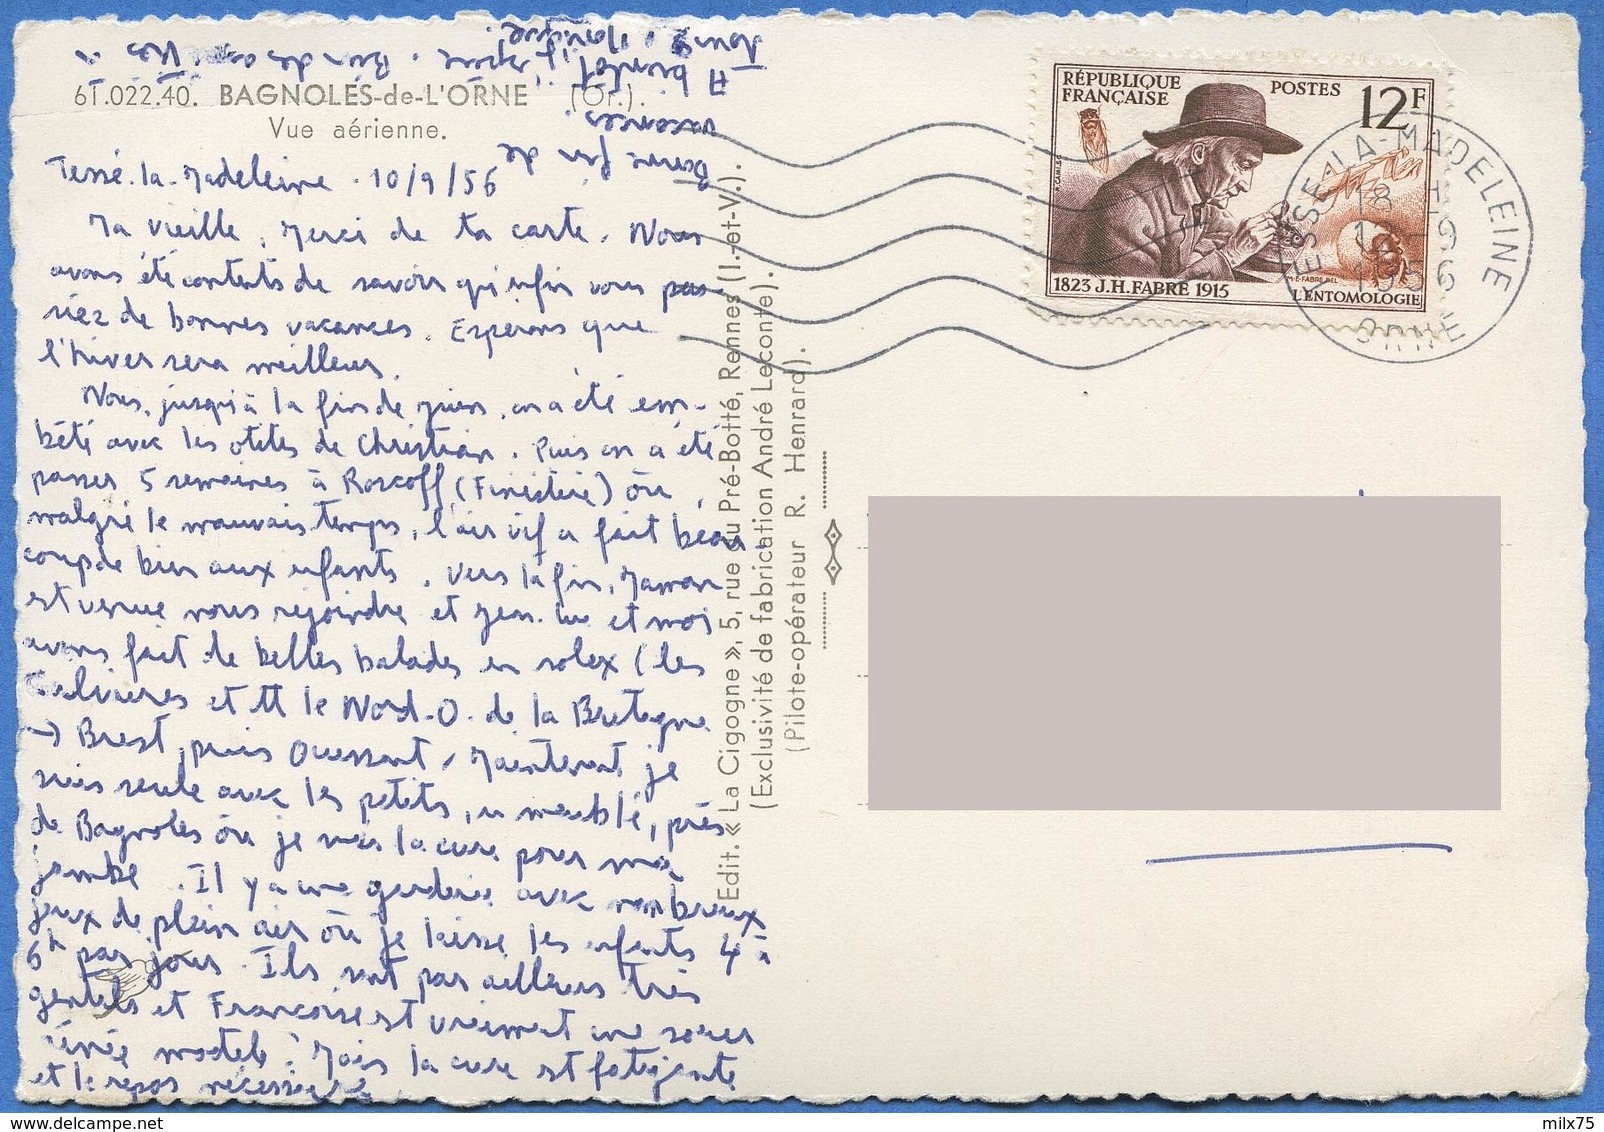 61.022.40. BAGNOLES-de-L'ORNE (Or.).
Vue aérienne.
Tessé-la-Madeleine . 10/9/56
Ma vieille, Merci de ta carte. Nous
avons été contents de savoir qu'enfin vous pas-
siez de bonnes vacances. Espérons que
l'hiver sera meilleur.
Nous, jusqu'à la fin de juin, on a été em-
bêté avec les otites de Christian. Puis on a été
passer 5 semaines à Roscoff (Finistère) où,
malgré le mauvais temps, l'air vif a fait beau-
coup de bien aux enfants. Vers la fin, Maman
est venue nous rejoindre et Jean-Luc et moi
avons fait de belles balades en solex (les
et tt le Nord-O. de la Bretagne
→ Brest, puis Ouessant. Maintenant je
suis seule avec les petits, en meublé, près
de Bagnoles où je fais la cure pour ma
jambe. Il y a une garderie avec nombreux
jeux de plein air où je laisse les enfants 4 à
6h par jour. Ils sont par ailleurs très
gentils et Françoise est vraiment une soeur
aînée modèle! Mais la cure est fatigante
et le repos nécessaire.
Bonne fin de
vacances.
A bientôt j'espère. Bien des
à Tous. Monique.
Edit. « La Cigogne », 5, rue du Pré-Botté, Rennes (I.-et-V.).
(Exclusivité de fabrication André Leconte).
(Pilote-opérateur R. Henrard).
RÉPUBLIQUE FRANÇAISE
POSTES 12F
1823 J.H. FABRE 1915
L'ENTOMOLOGIE
TESSE-LA-MADELEINE
18 H
12-9
1956
ORNE
milx75